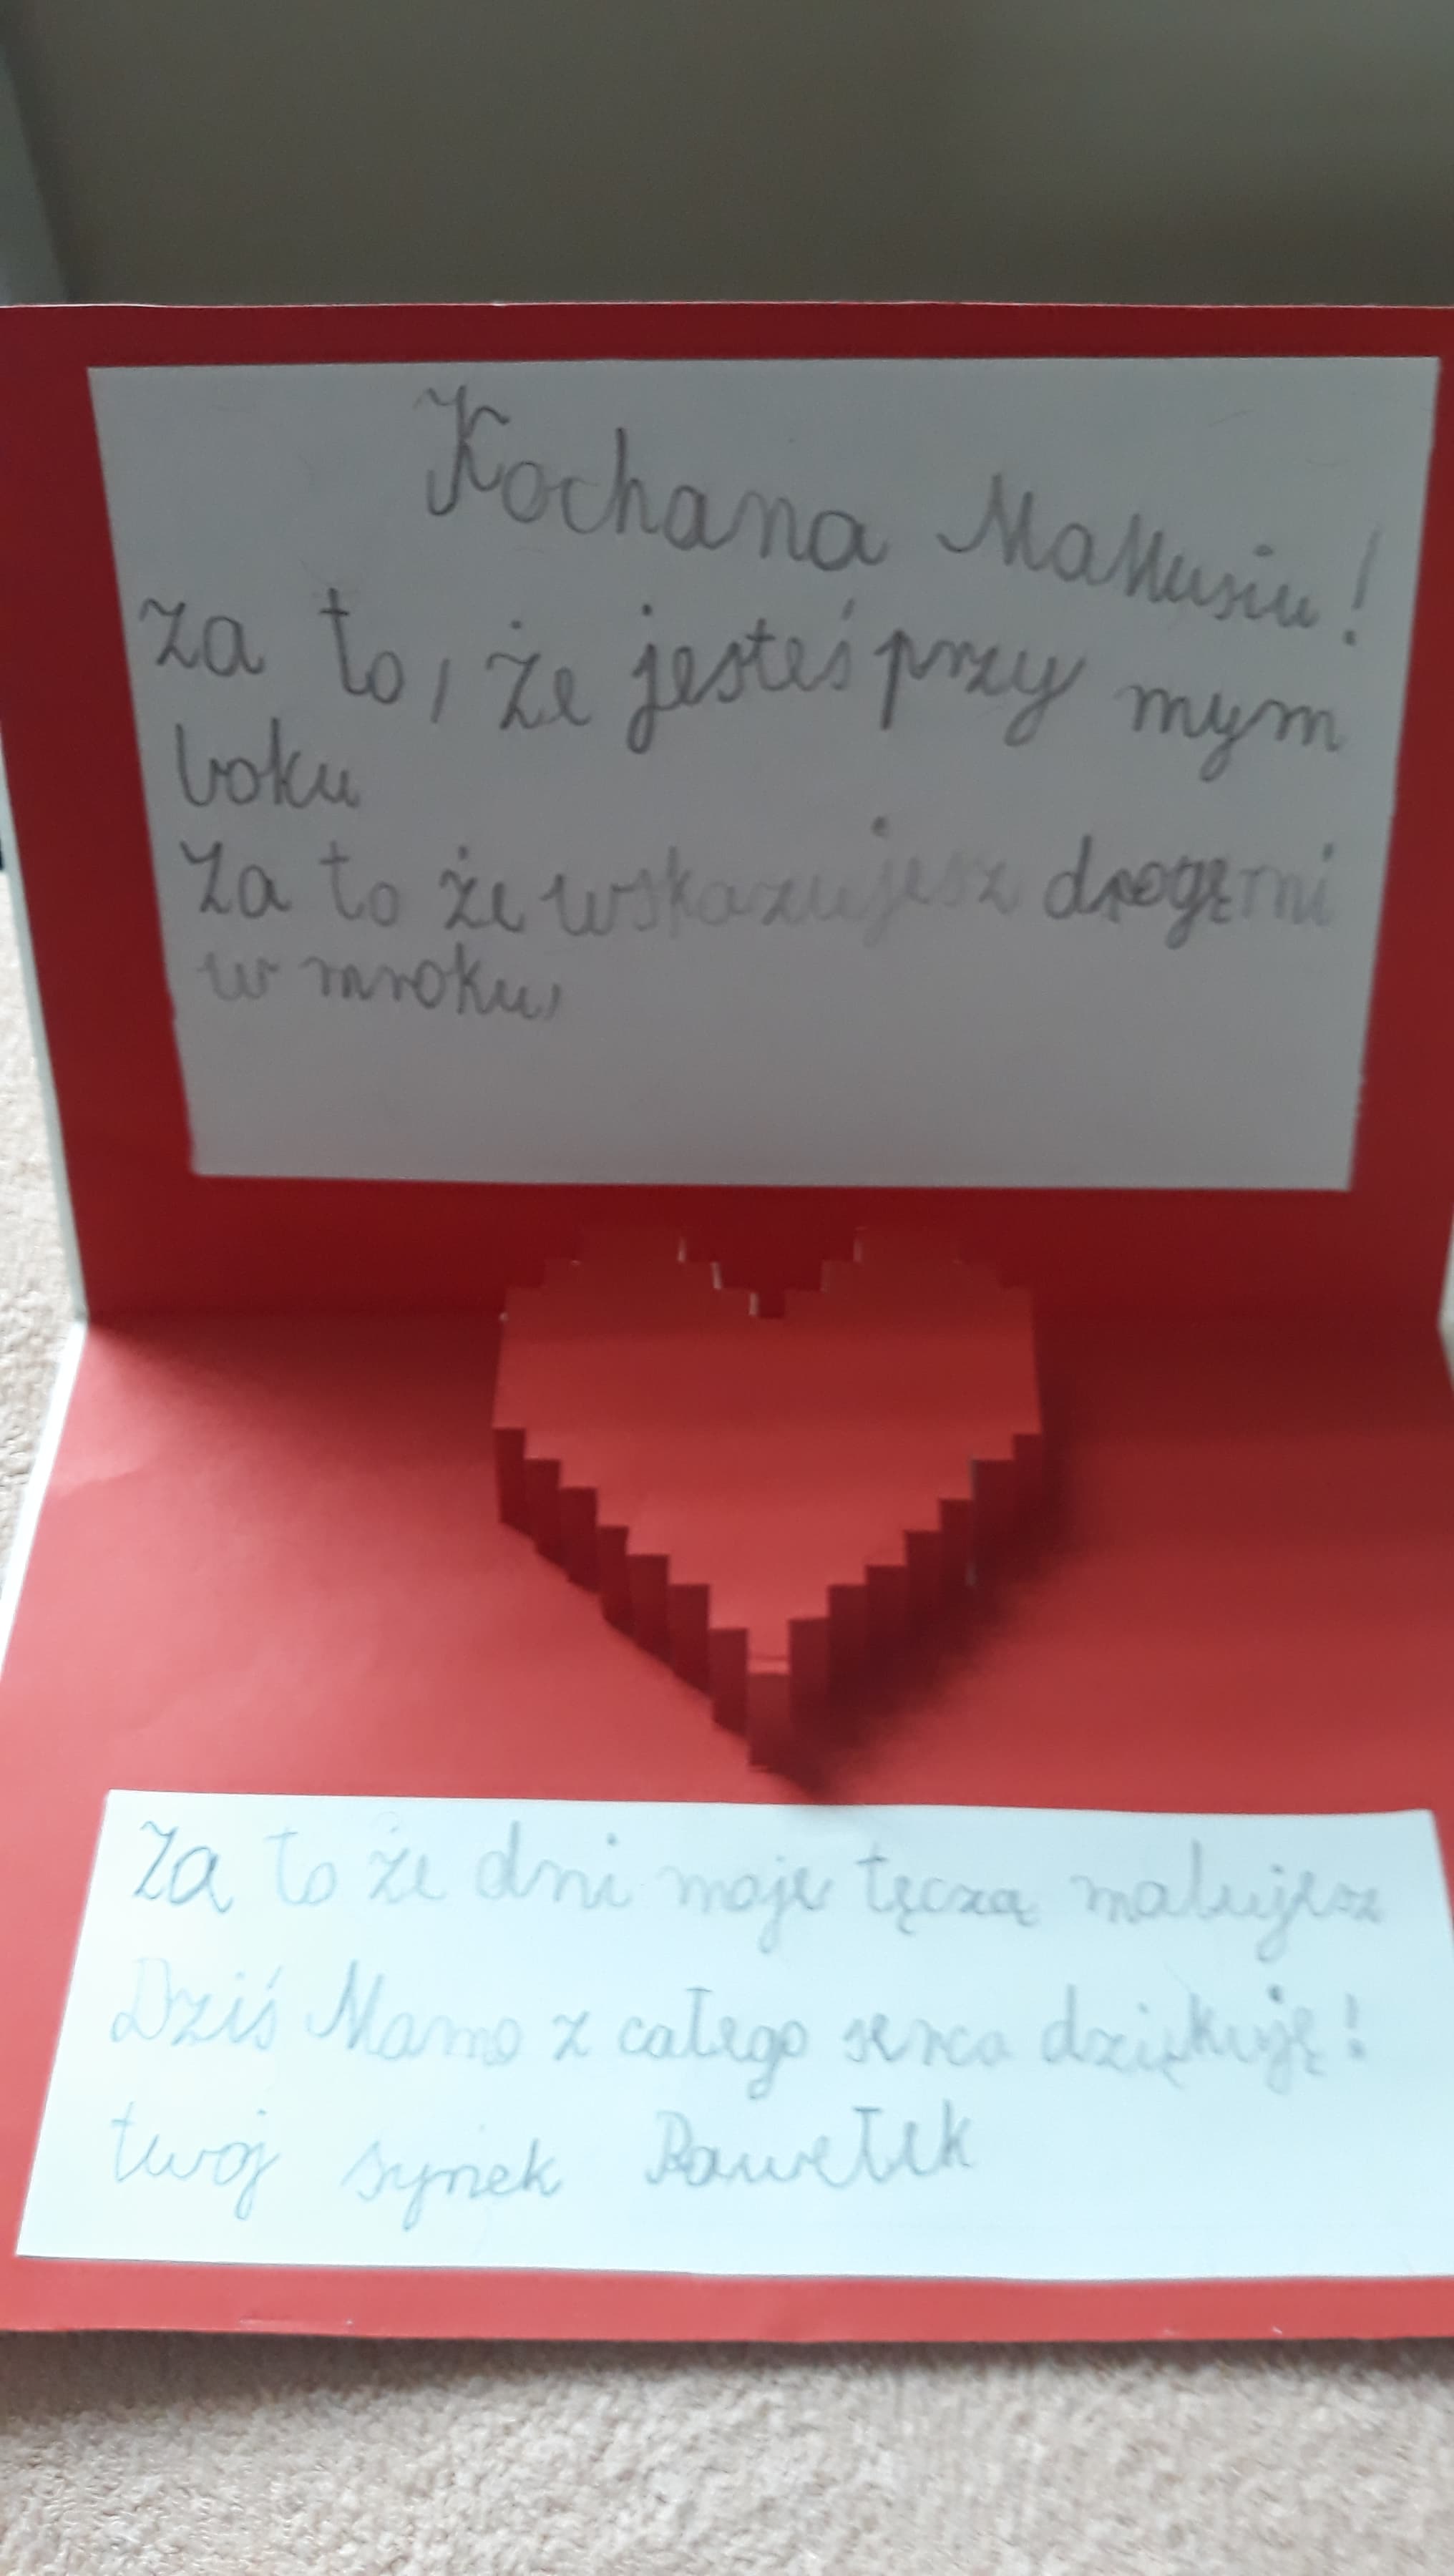 Kochana Mamusiu!
Za to, że jesteś przy mym
boku
Za to że wskazujesz drogę mi
w mroku,
Za to że dni moje tęczą malujesz
Dziś Mamo z całego serca dziękuję!
twój synek Pawełek